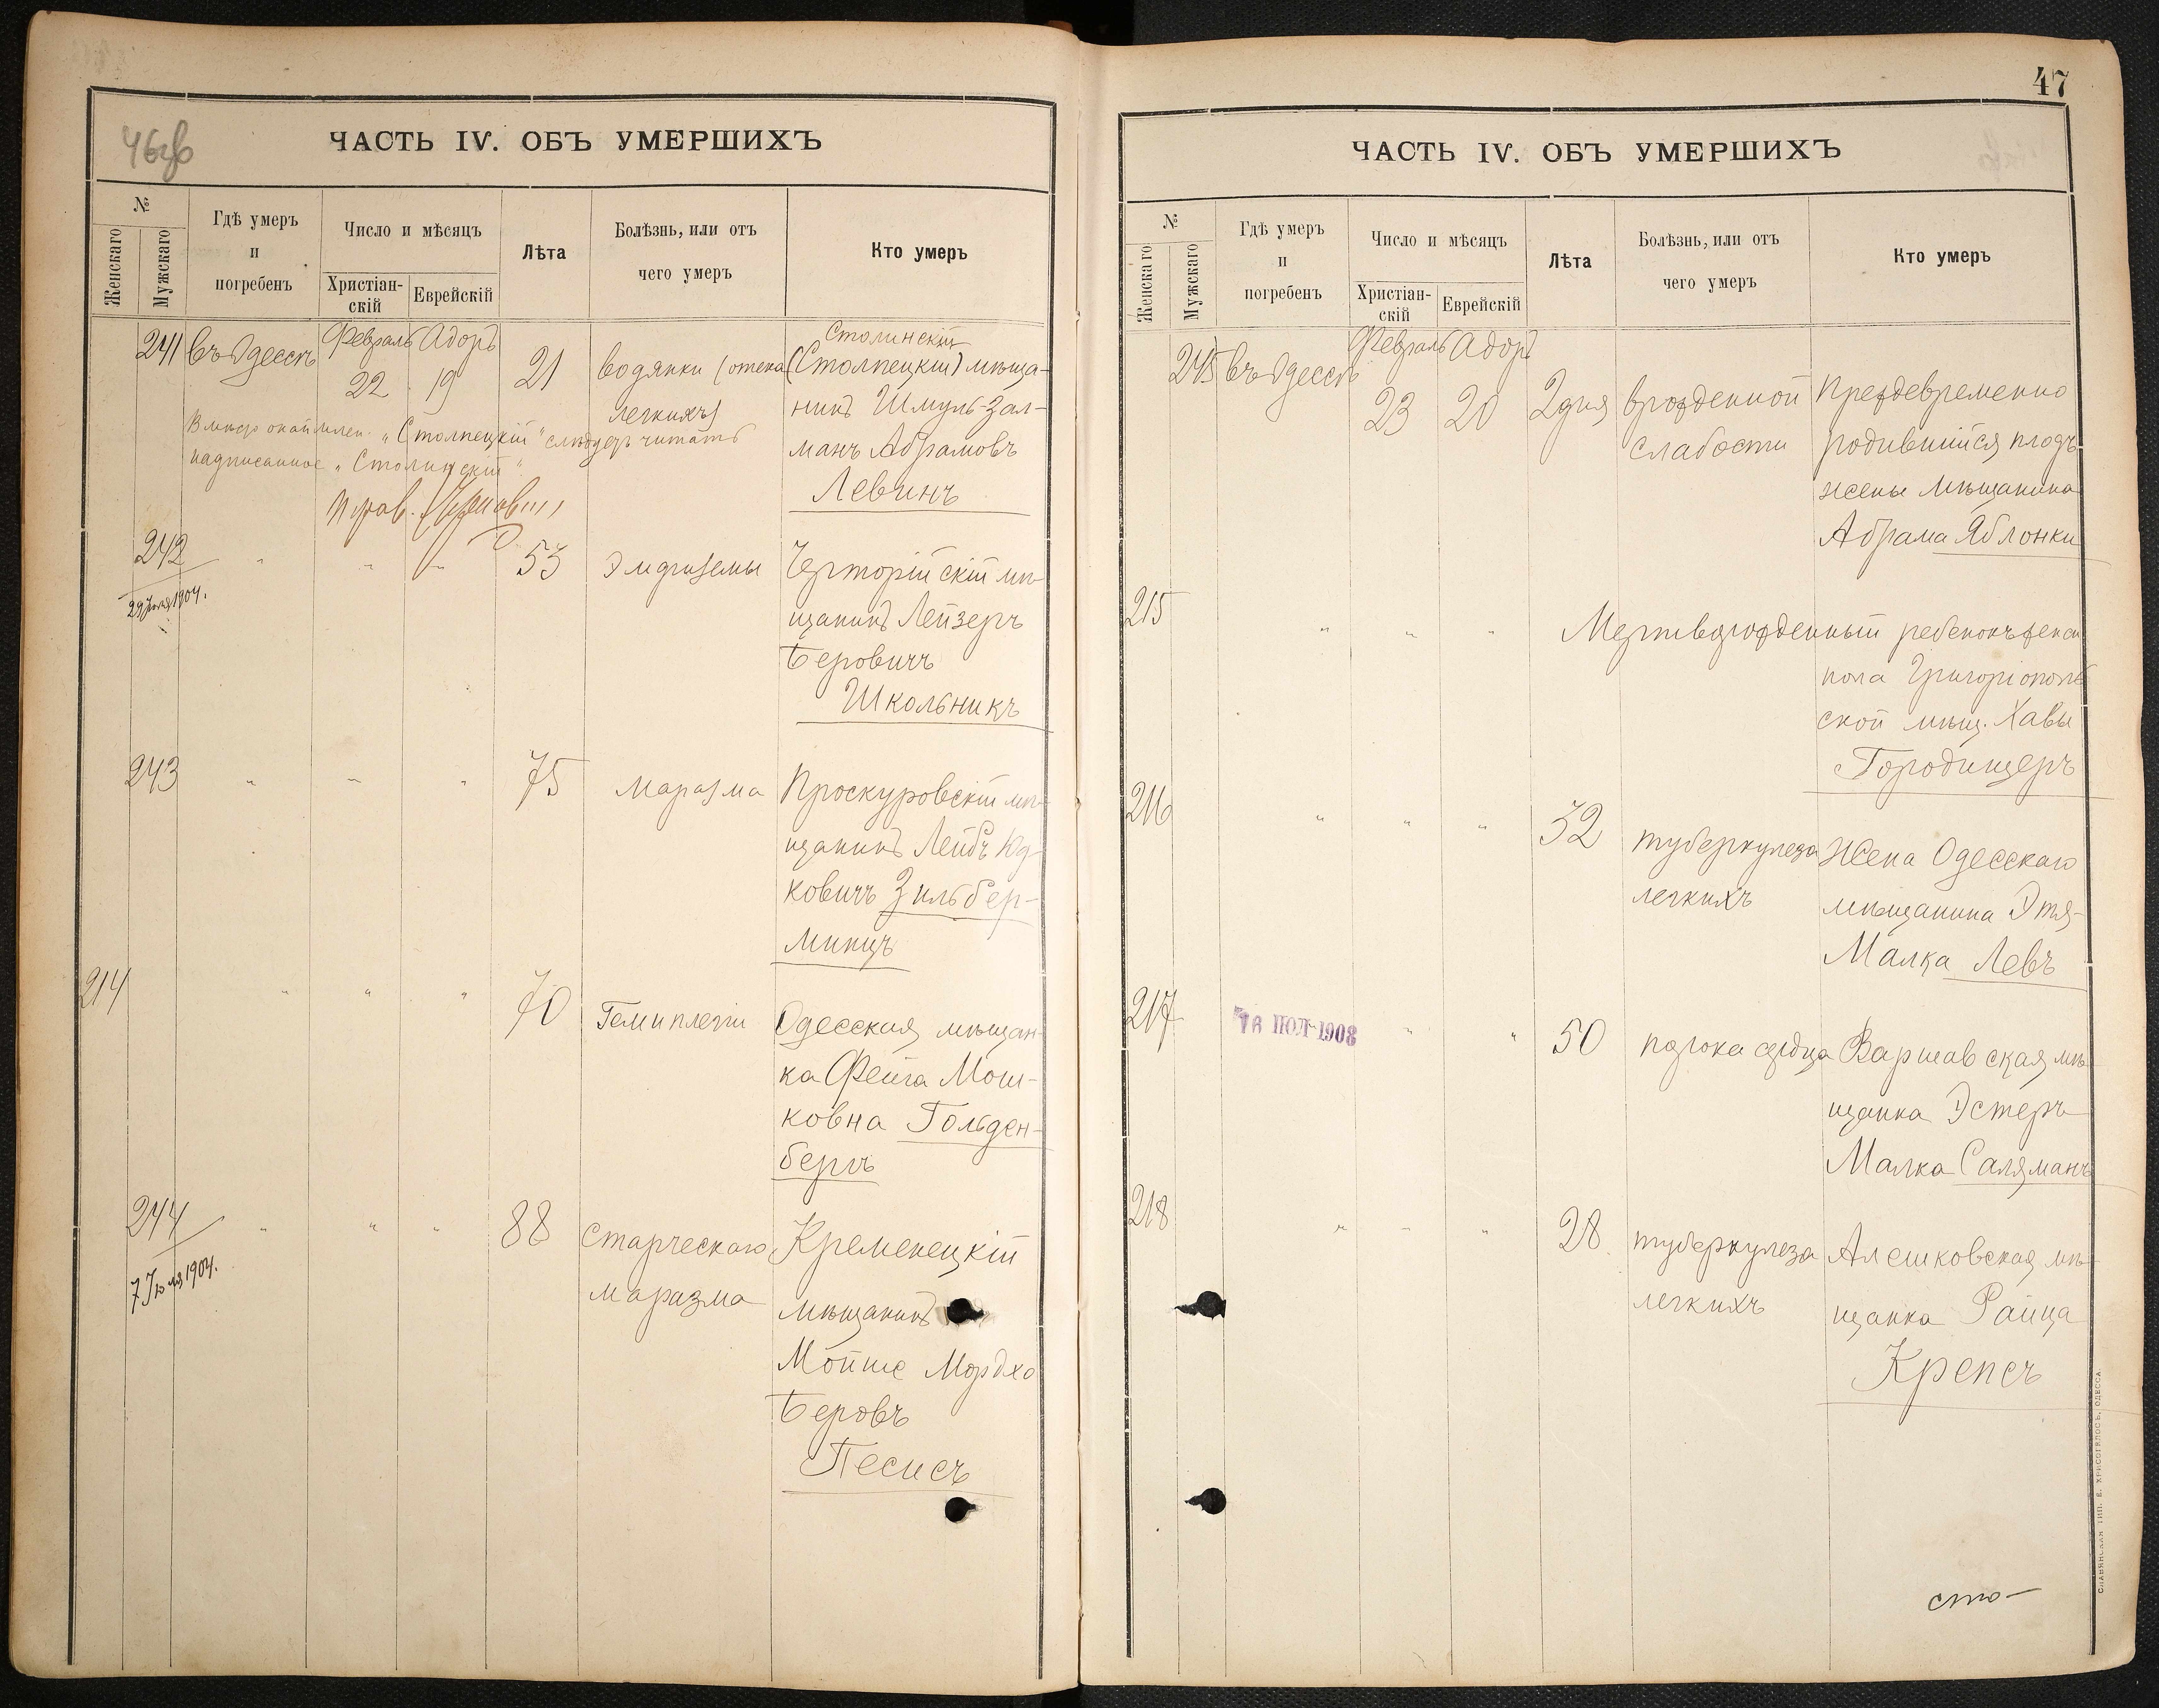 46об
ЧАСТЬ IV. ОБЪ УМЕРШИХЪ
№
Женскаго
Мужскаго
Гдѣ умеръ
и
погребенъ
Число и мѣсяцъ
Христіан-
скій
Еврейскій
Лѣта
Болѣзнь, или отъ
чего умеръ
Кто умеръ
241 въ Одессѣ Февраль Адоръ
22 19 21 водянки (отека
легкихъ)
Столинскій
(Столпецкій) мѣща-
нинъ Шмуль-Зал-
манъ Абрамовъ
Левинъ
"Столпецкій" слѣдуетъ читать
надписанное "Столинскій"
242 " " " 53 Эмфиземы Черторійскій мѣ-
29 1904.
щанинъ Лейзеръ
Беровичъ
Школьникъ
243 " " " 75 Маразма Проскуровскій мѣ-
щанинъ Лейбъ Юд-
ковичъ Зильбер-
минцъ
214 " " " 70 Гемиплегіи Одесская мѣщан-
ка Фейга Мош-
ковна Гольден-
бергъ
244 " " " 88 Старческаго
маразма
7 Іюля 1904.
Кременецкій
мѣщанинъ
Мойше Мордхо
Беровъ
Песисъ
47
ЧАСТЬ IV. ОБЪ УМЕРШИХЪ
№
Женскаго
Мужскаго
Гдѣ умеръ
и
погребенъ
Число и мѣсяцъ
Христіан-
скій
Еврейскій
Лѣта
Болѣзнь, или отъ
чего умеръ
Кто умеръ
245 въ Одессѣ Февраль Адоръ
23 20 2 дня врожденной
слабости
Преждевременно
родившійся плодъ
жены мѣщанина
Абрама Яблонки
215 " " " Мертворожденный ребенокъ женск
пола Григоріополь
ской мѣщ. Хавы
Городищеръ
216 " " " 32 туберкулеза
легкихъ
Жена Одесскаго
мѣщанина Этя-
Малка Левъ
217 16 ІЮЛ 1908 " " 50 порока сердца Варшавская мѣ-
щанка Эстеръ
Малка Саляманъ
218 " " " 28 туберкулеза
легкихъ
Алешковская мѣ-
щанка Райца
Крепсъ
сто-
СЛАВЯНСКАЯ ТИП. Е. ХРИСОГЕЛОСЪ, ОДЕССА